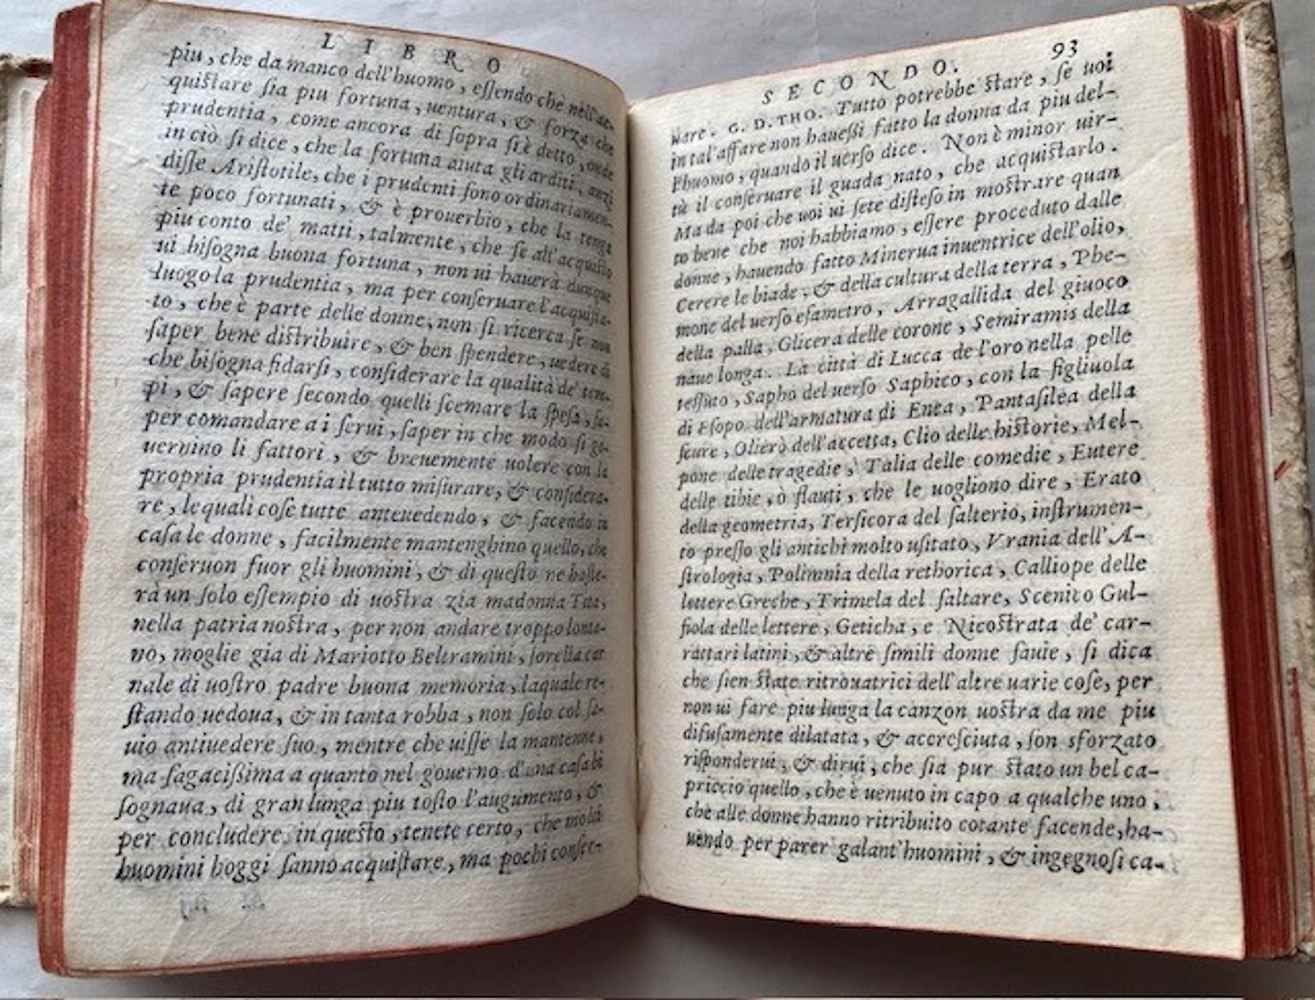 LIBRO
più, che da manco dell'huomo, eſſendo che nell'ac-
quiſtare ſia piu fortuna, uentura, & forza che
prudentia, come ancora di ſopra ſi è detto, onde
in ciò ſi dice, che la fortuna aiuta gli arditi, anzi
diſſe Ariſtotile, che i prudenti ſono ordinariamen-
te poco fortunati, & è prouerbio, che la tenga
piu conto de' matti, talmente, che ſe all'acquiſto
ui biſogna buona fortuna, non ui hauerà dunque
luogo la prudentia, ma per conſeruare l'acquiſta-
to, che è parte delle donne, non ſi ricerca ſe non
ſaper bene diſtribuire, & ben ſpendere, uedere di
che biſogna fidarſi, conſiderare la qualità de' tem-
pi, & ſapere ſecondo quelli ſcemare la ſpeſa, ſa-
per comandare a i ſerui, ſaper in che modo ſi go-
uernino li fattori, & breuemente uolere con la
propria prudentia il tutto miſurare, & conſidera-
re, le quali coſe tutte anteuedendo, & facendo in
caſa le donne, facilmente mantenghino quello, che
conſeruon fuor gli huomini, & di queſto ne baſte-
rà un ſolo eſſempio di uoſtra zia madonna Tita,
nella patria noſtra, per non andare troppo lonta-
no, moglie gia di Mariotto Beltramini, ſorella car
nale di uoſtro padre buona memoria, laquale re-
ſtando uedoua, & in tanta robba, non ſolo col ſa-
uio antiuedere ſuo, mentre che uiſſe la mantenne,
ma ſagaciſſima a quanto nel gouerno d'una caſa bi
ſognaua, di gran lunga piu toſto l'augumentò, &
per concludere in queſto, tenete certo, che molti
huomini hoggi ſanno acquiſtare, ma pochi conſer-
SECONDO. 93
uare. G. D. THO. Tutto potrebbe ſtare, ſe uoi
in tal'affare non haueſſi fatto la donna da piu del-
l'huomo, quando il uerſo dice. Non è minor uir-
tù il conſeruare il guadagnato, che acquiſtarlo.
Ma da poi che uoi ui ſete diſteſo in moſtrare quan
to bene che noi habbiamo, eſſere proceduto dalle
donne, hauendo fatto Minerua inuentrice dell'olio,
Cerere le biade, & della cultura della terra, Phe-
mone del uerſo eſametro, Arragallida del giuoco
della palla, Glicera delle corone, Semiramis della
naue longa. La città di Lucca de l'oro nella pelle
teſſuto, Sapho del uerſo Saphico, con la figliuola
di Eſopo dell'armatura di Enea, Pantaſilea della
ſcure, Olierò dell'accetta, Clio delle hiſtorie, Mel-
pone delle tragedie, Talia delle comedie, Eutere
delle tibie, ò flauti, che le uogliono dire, Erato
della geometria, Terſicora del ſalterio, inſtrumen-
to preſſo gli antichi molto uſitato, Vrania dell'A-
ſtrologia, Polimnia della rethorica, Calliope delle
lettere Greche, Trimela del ſaltare, Scenico Gul-
fiola delle lettere, Geticha, e Nicoſtrata de' car-
rattari latini, & altre ſimili donne ſauie, ſi dica
che ſien ſtate ritrouatrici dell'altre uarie coſe, per
non ui fare piu lunga la canzon uoſtra da me piu
difuſamente dilatata, & accreſciuta, ſon sforzato
riſponderui, & dirui, che ſia pur ſtato un bel ca-
priccio quello, che è uenuto in capo a qualche uno,
che alle donne hanno ritribuito cotante facende, ha-
uendo per parer galant'huomini, & ingegnoſi ca-